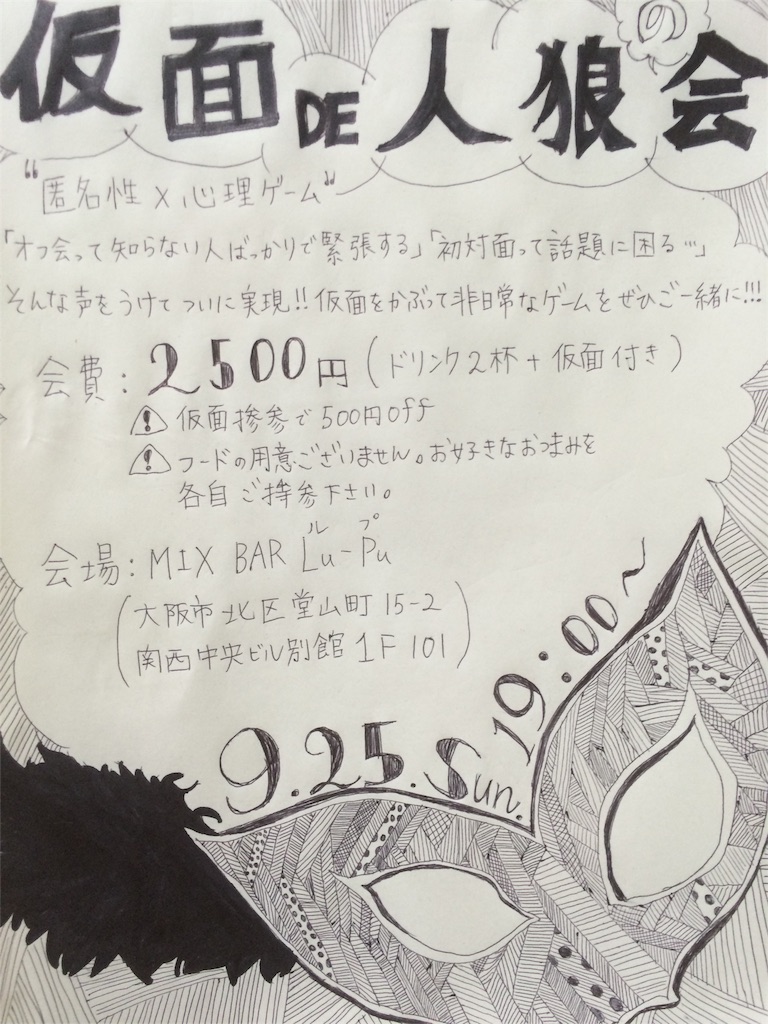 仮面DE人狼の会
"匿名性×心理ゲーム"
「オフ会って知らない人ばっかりで緊張する」「初対面って話題に困る…」
そんな声をうけてついに実現!!仮面をかぶって非日常なゲームをぜひご一緒に!!!
会費:2500円(ドリンク2杯+仮面付き)
⚠仮面持参で500円off
⚠フードの用意ございません。お好きなおつまみを
各自ご持参下さい。
ル プ
会場:MIX BAR Lu-Pu
(大阪市北区堂山町15-2
関西中央ビル別館1F101)
9.25.Sun.19:00~